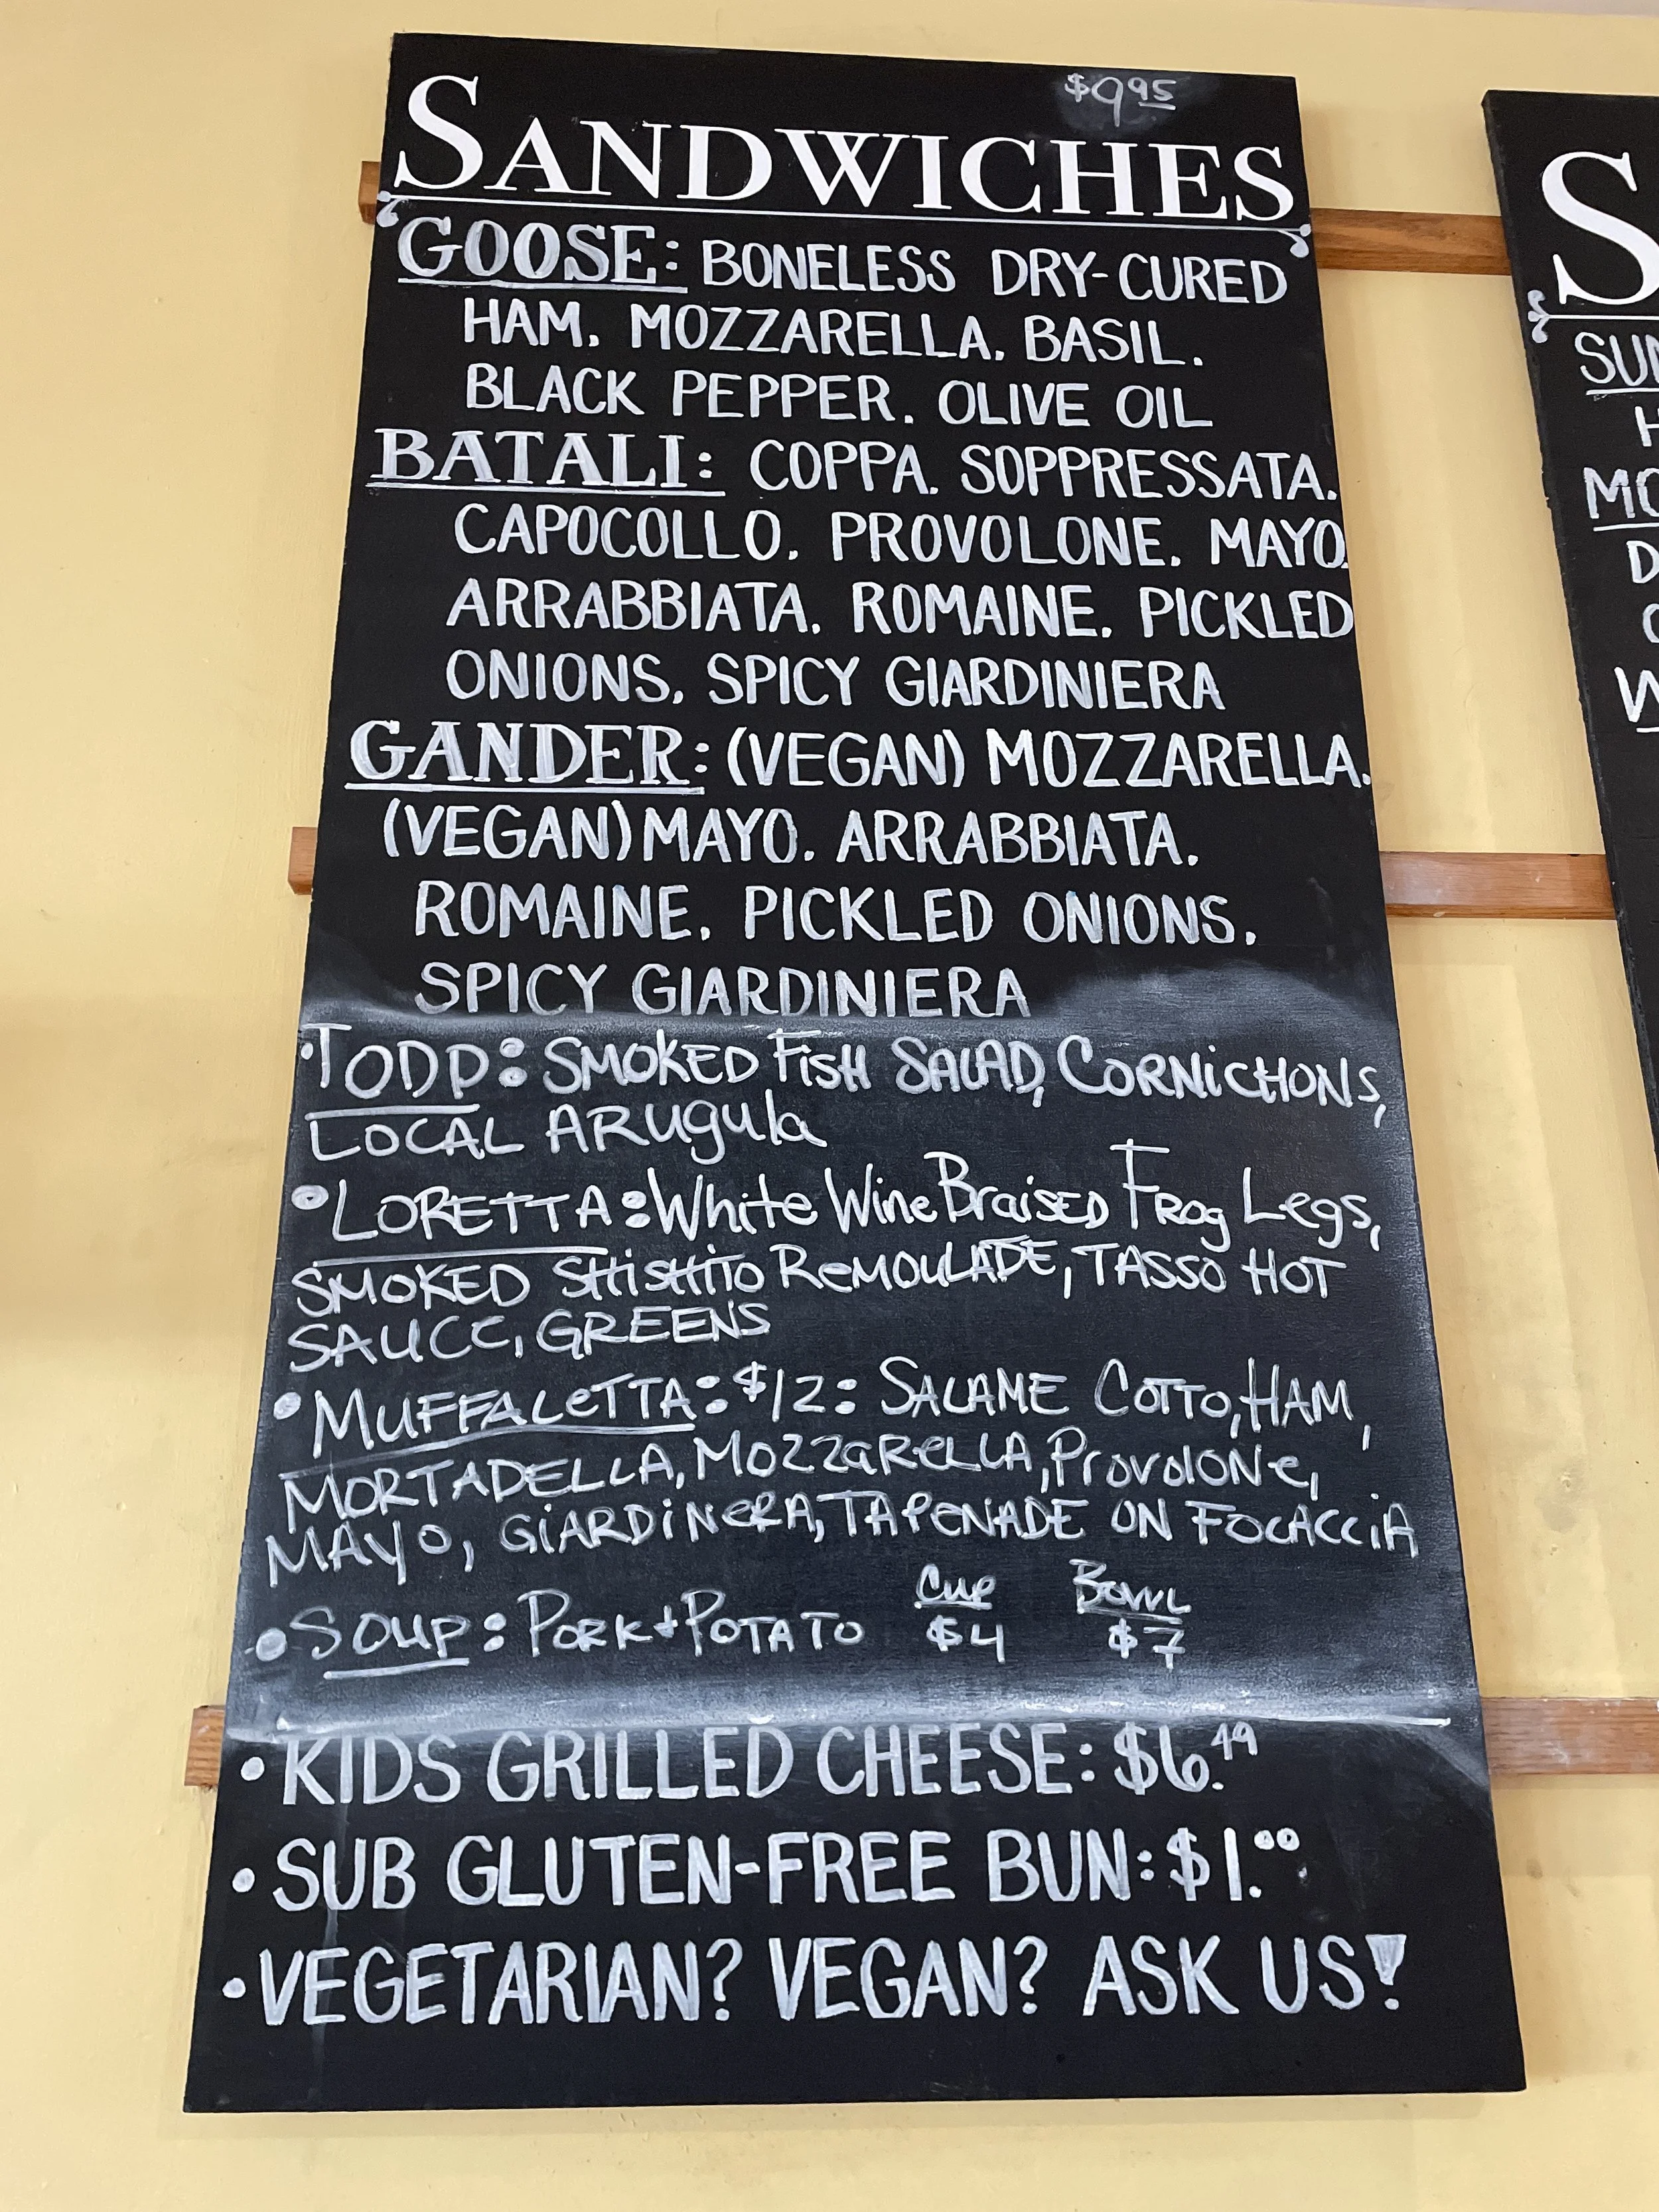 $9.95
SANDWICHES
GOOSE: BONELESS DRY-CURED
HAM. MOZZARELLA. BASIL.
BLACK PEPPER. OLIVE OIL
BATALI: COPPA. SOPPRESSATA.
CAPOCOLLO. PROVOLONE. MAYO.
ARRABBIATA. ROMAINE. PICKLED
ONIONS. SPICY GIARDINIERA
GANDER: (VEGAN) MOZZARELLA.
(VEGAN) MAYO. ARRABBIATA.
ROMAINE. PICKLED ONIONS.
SPICY GIARDINIERA
•TODD: SMOKED FiSH SALAD, CORNiCHONS,
LOCAL ARugula
•LORETTA: White Wine BraiSED FRog Legs,
SMOKED SHiSHiTO ReMOULADE, TASSO HOT
SAUCE, GREENS
•MUFFALeTTA: $12: SALAME COTTO, HAM,
MORTADELLA, MOZZaReLLA, ProvolONe,
MAYO, GiARDiNeRA, TAPeNADE ON FOCACCiA
•SOUP: PORK+POTATO Cup $4 Bowl $7
•KIDS GRILLED CHEESE: $6.49
•SUB GLUTEN-FREE BUN: $1.00
•VEGETARIAN? VEGAN? ASK US!
S
SUN
H
MO
D